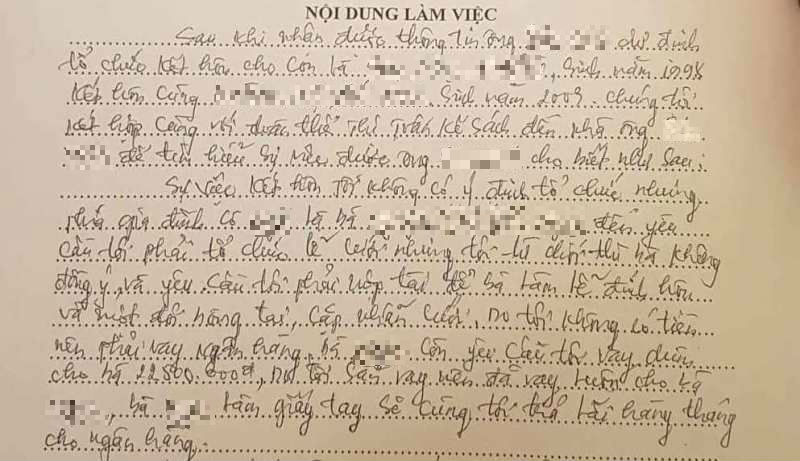 NỘI DUNG LÀM VIỆC
Sau khi nhận được thông tin ông dự định
tổ chức kết hôn cho con là , sinh năm 1998
kết hôn cùng . Sinh năm 2003. chúng tôi
kết hợp cùng với đoàn thể Thị trấn Kế Sách đến nhà ông
để tìm hiểu sự việc được ông cho biết như sau:
Sự việc kết hôn tôi không có ý định tổ chức nhưng
phía gia đình có là bà đến yêu
cầu tôi phải tổ chức lễ cưới nhưng tôi từ chối thì bà không
đồng ý, và yêu cầu tôi phải nộp tài để bà làm lễ đính hôn
và một đôi bông tai, cặp nhẫn cưới, Do tôi không có tiền
nên phải vay ngân hàng, bà còn yêu cầu tôi vay dùm
cho bà 22.800.000đ, Do tôi sẵn vay nên đã vay luôn cho bà
, bà làm giấy tay sẽ cùng tôi trả lãi hàng tháng
cho ngân hàng.